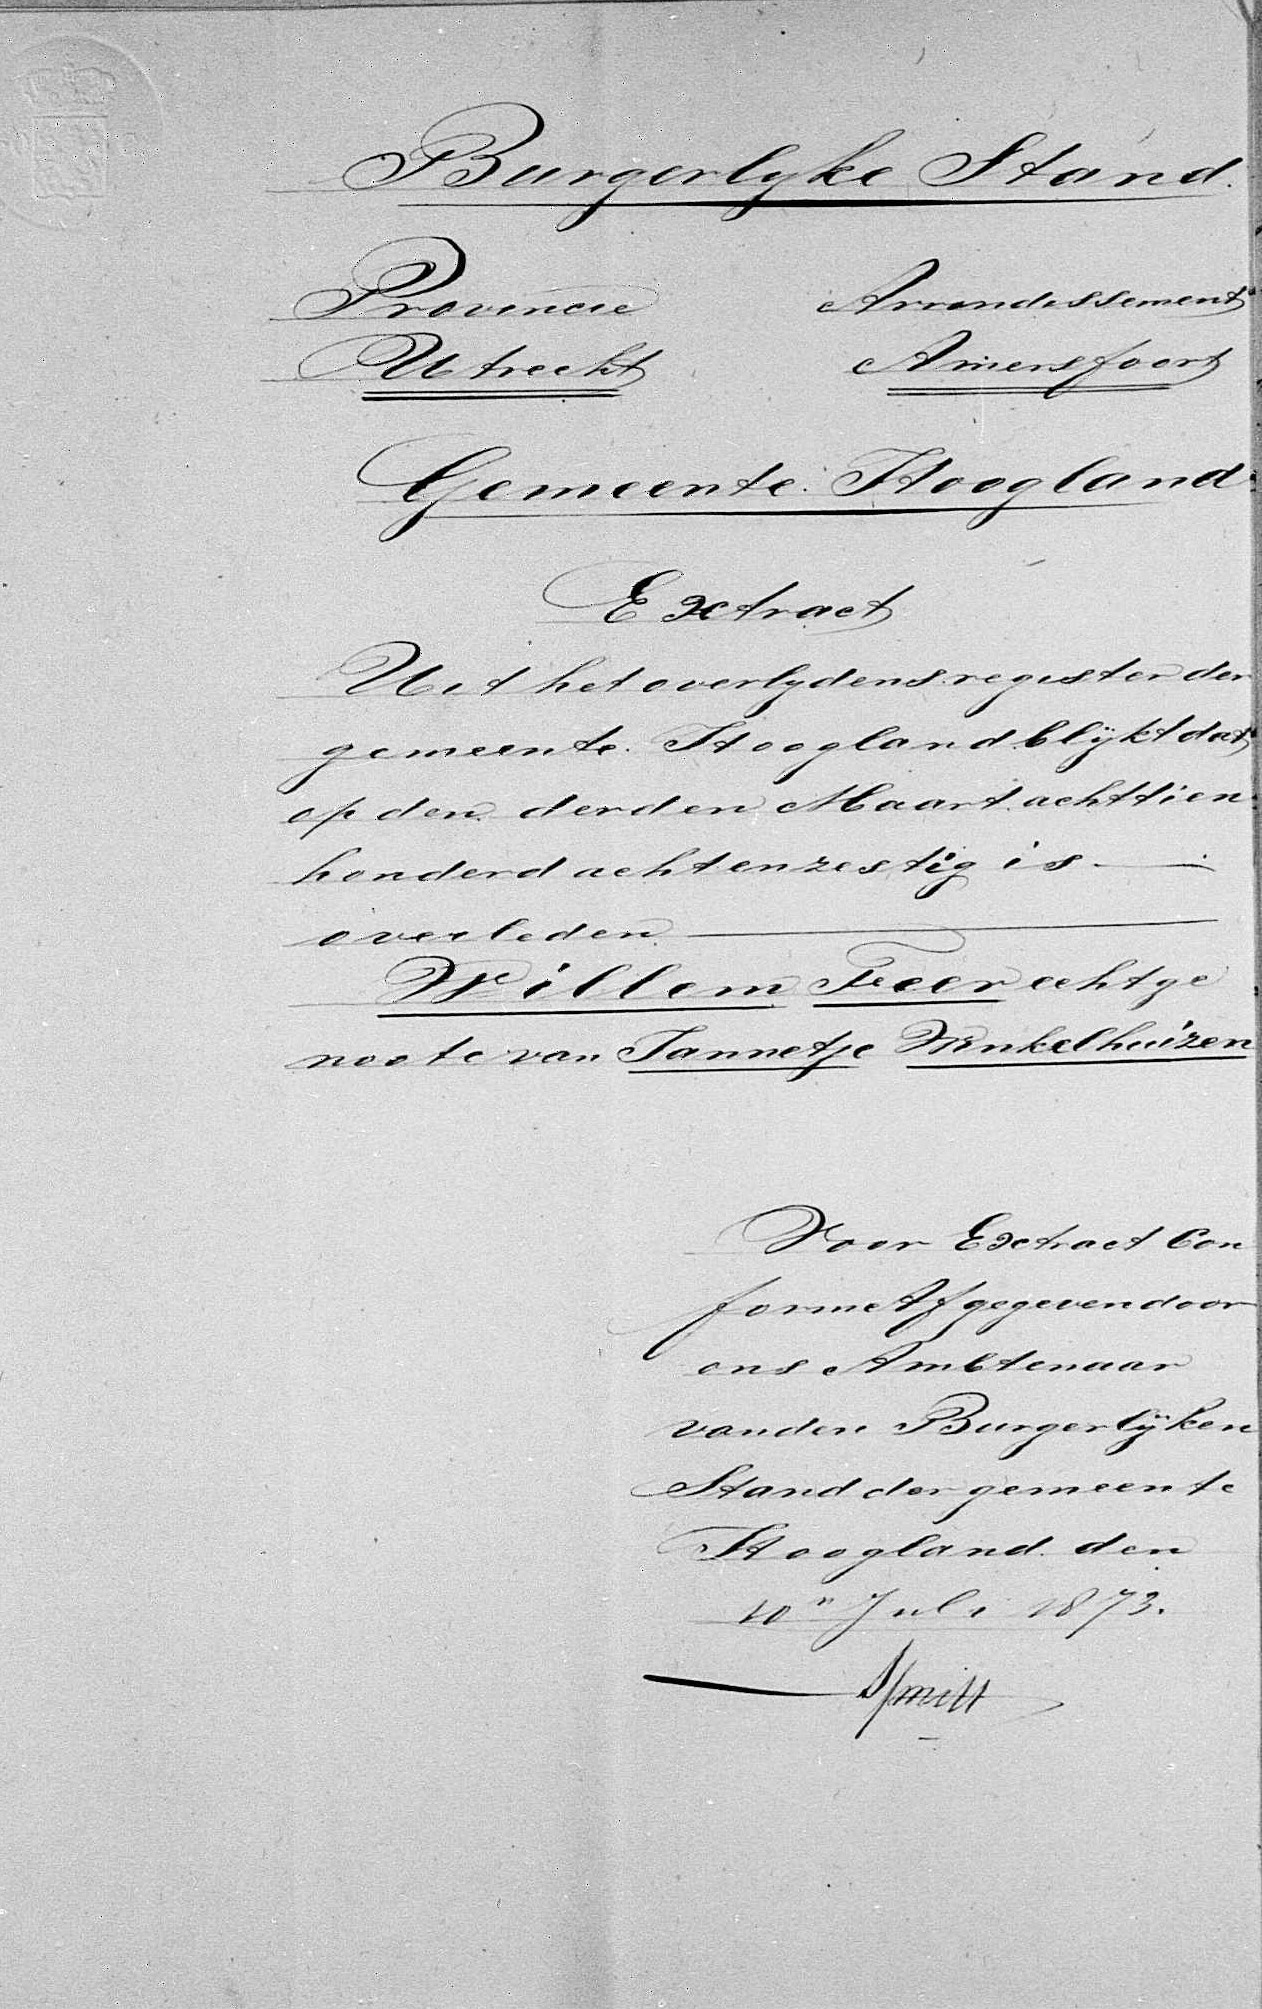 Burgerlyke Stand.
Provincie Arrondissement
Utrecht Amersfoort
Gemeente Hoogland
Extract
Uit het overlydensregister der
gemeente Hoogland blijkt dat
op den derden Maart achttien
honderd achtenzestig is
overleden
Willem Feer echtge
noote van Jannetje Winkelhuizen
Voor Extract Con
forme Afgegeven door
ons Ambtenaar
van den Burgerlijken
Stand der gemeente
Hoogland den
10n Juli 1873.
Smitt